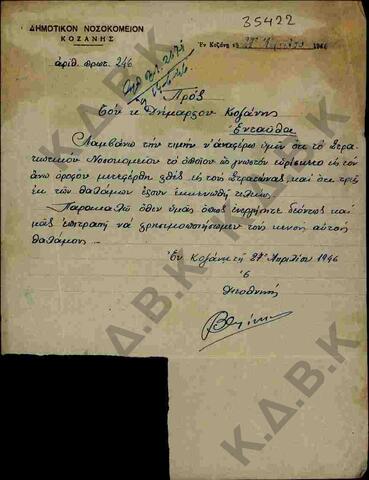 35422
ΔΗΜΟΤΙΚΟΝ ΝΟΣΟΚΟΜΕΙΟΝ
ΚΟΖΑΝΗΣ
Ἐν Κοζάνῃ τῇ 27 Ἀπριλίου 1946
ἀριθ. πρωτ. 246
Πρός
Τόν κ. Δήμαρχον Κοζάνης
Ἐνταῦθα
Λαμβάνω τήν τιμήν ν' ἀναφέρω ὑμῖν ὅτι τό Στρα-
τιωτικόν Νοσοκομεῖον τό ὁποῖον ὡς γνωστόν εὑρίσκετο εἰς τόν
ἄνω ὄροφον μετεφέρθη χθές εἰς τούς Στρατῶνας, καί ὅτι τρεῖς
ἐκ τῶν θαλάμων ἔχουν ἐκκενωθῆ τελείως.
Παρακαλῶ ὅθεν ὑμᾶς ὅπως ἐνεργήσητε δεόντως καί
μᾶς ἐπιτραπῆ νά χρησιμοποιήσωμεν τούς κενούς αὐτούς
θαλάμους.
Ἐν Κοζάνῃ τῇ 27 Ἀπριλίου 1946
Ὁ
Διευθυντής
Κ.Δ.Β.Κ